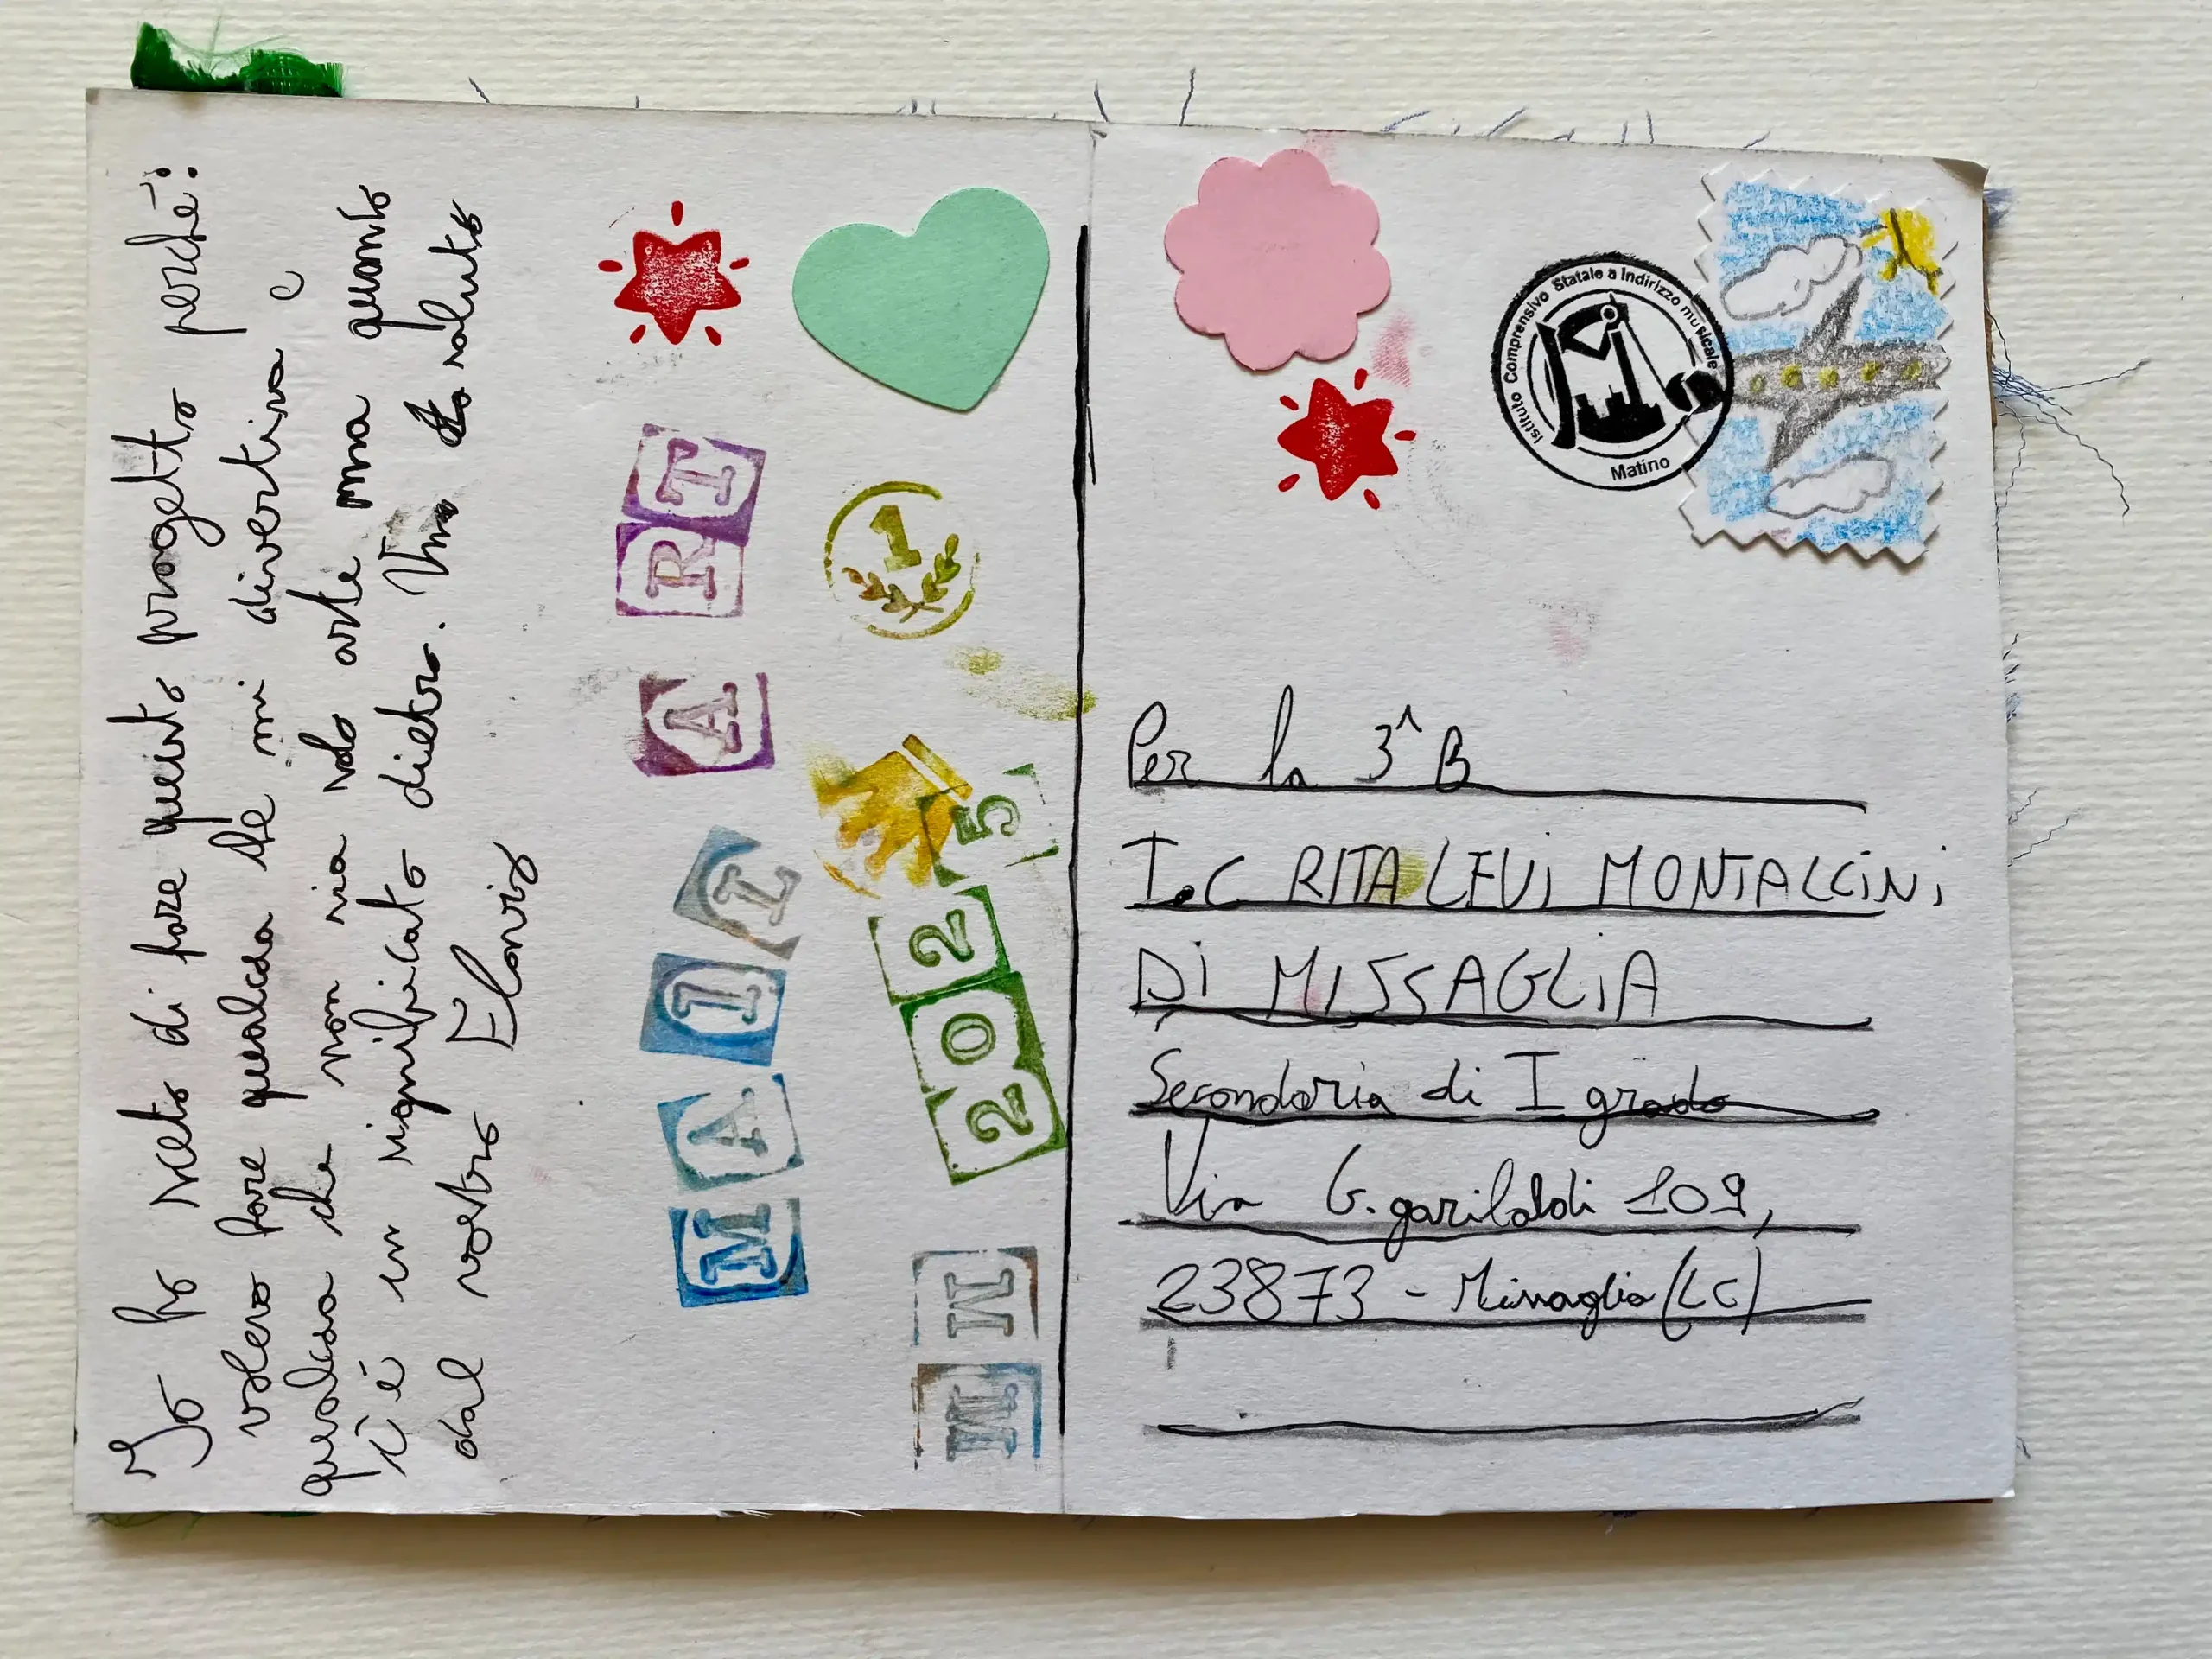 Io ho scelto di fare questo progetto perché:
volevo fare qualcosa che mi divertiva e
qualcosa che non sia solo arte ma quanto
c'è un significato dietro. Un saluto
dal vostro Elavis
MAIL ART
1
2025
MM
Istituto Comprensivo Statale a Indirizzo musicale
Matino
Per la 3^B
I.C RITA LEVI MONTALCINI
DI MISSAGLIA
Secondaria di I grado
Via G. garibaldi 109,
23873 - Missaglia (LC)